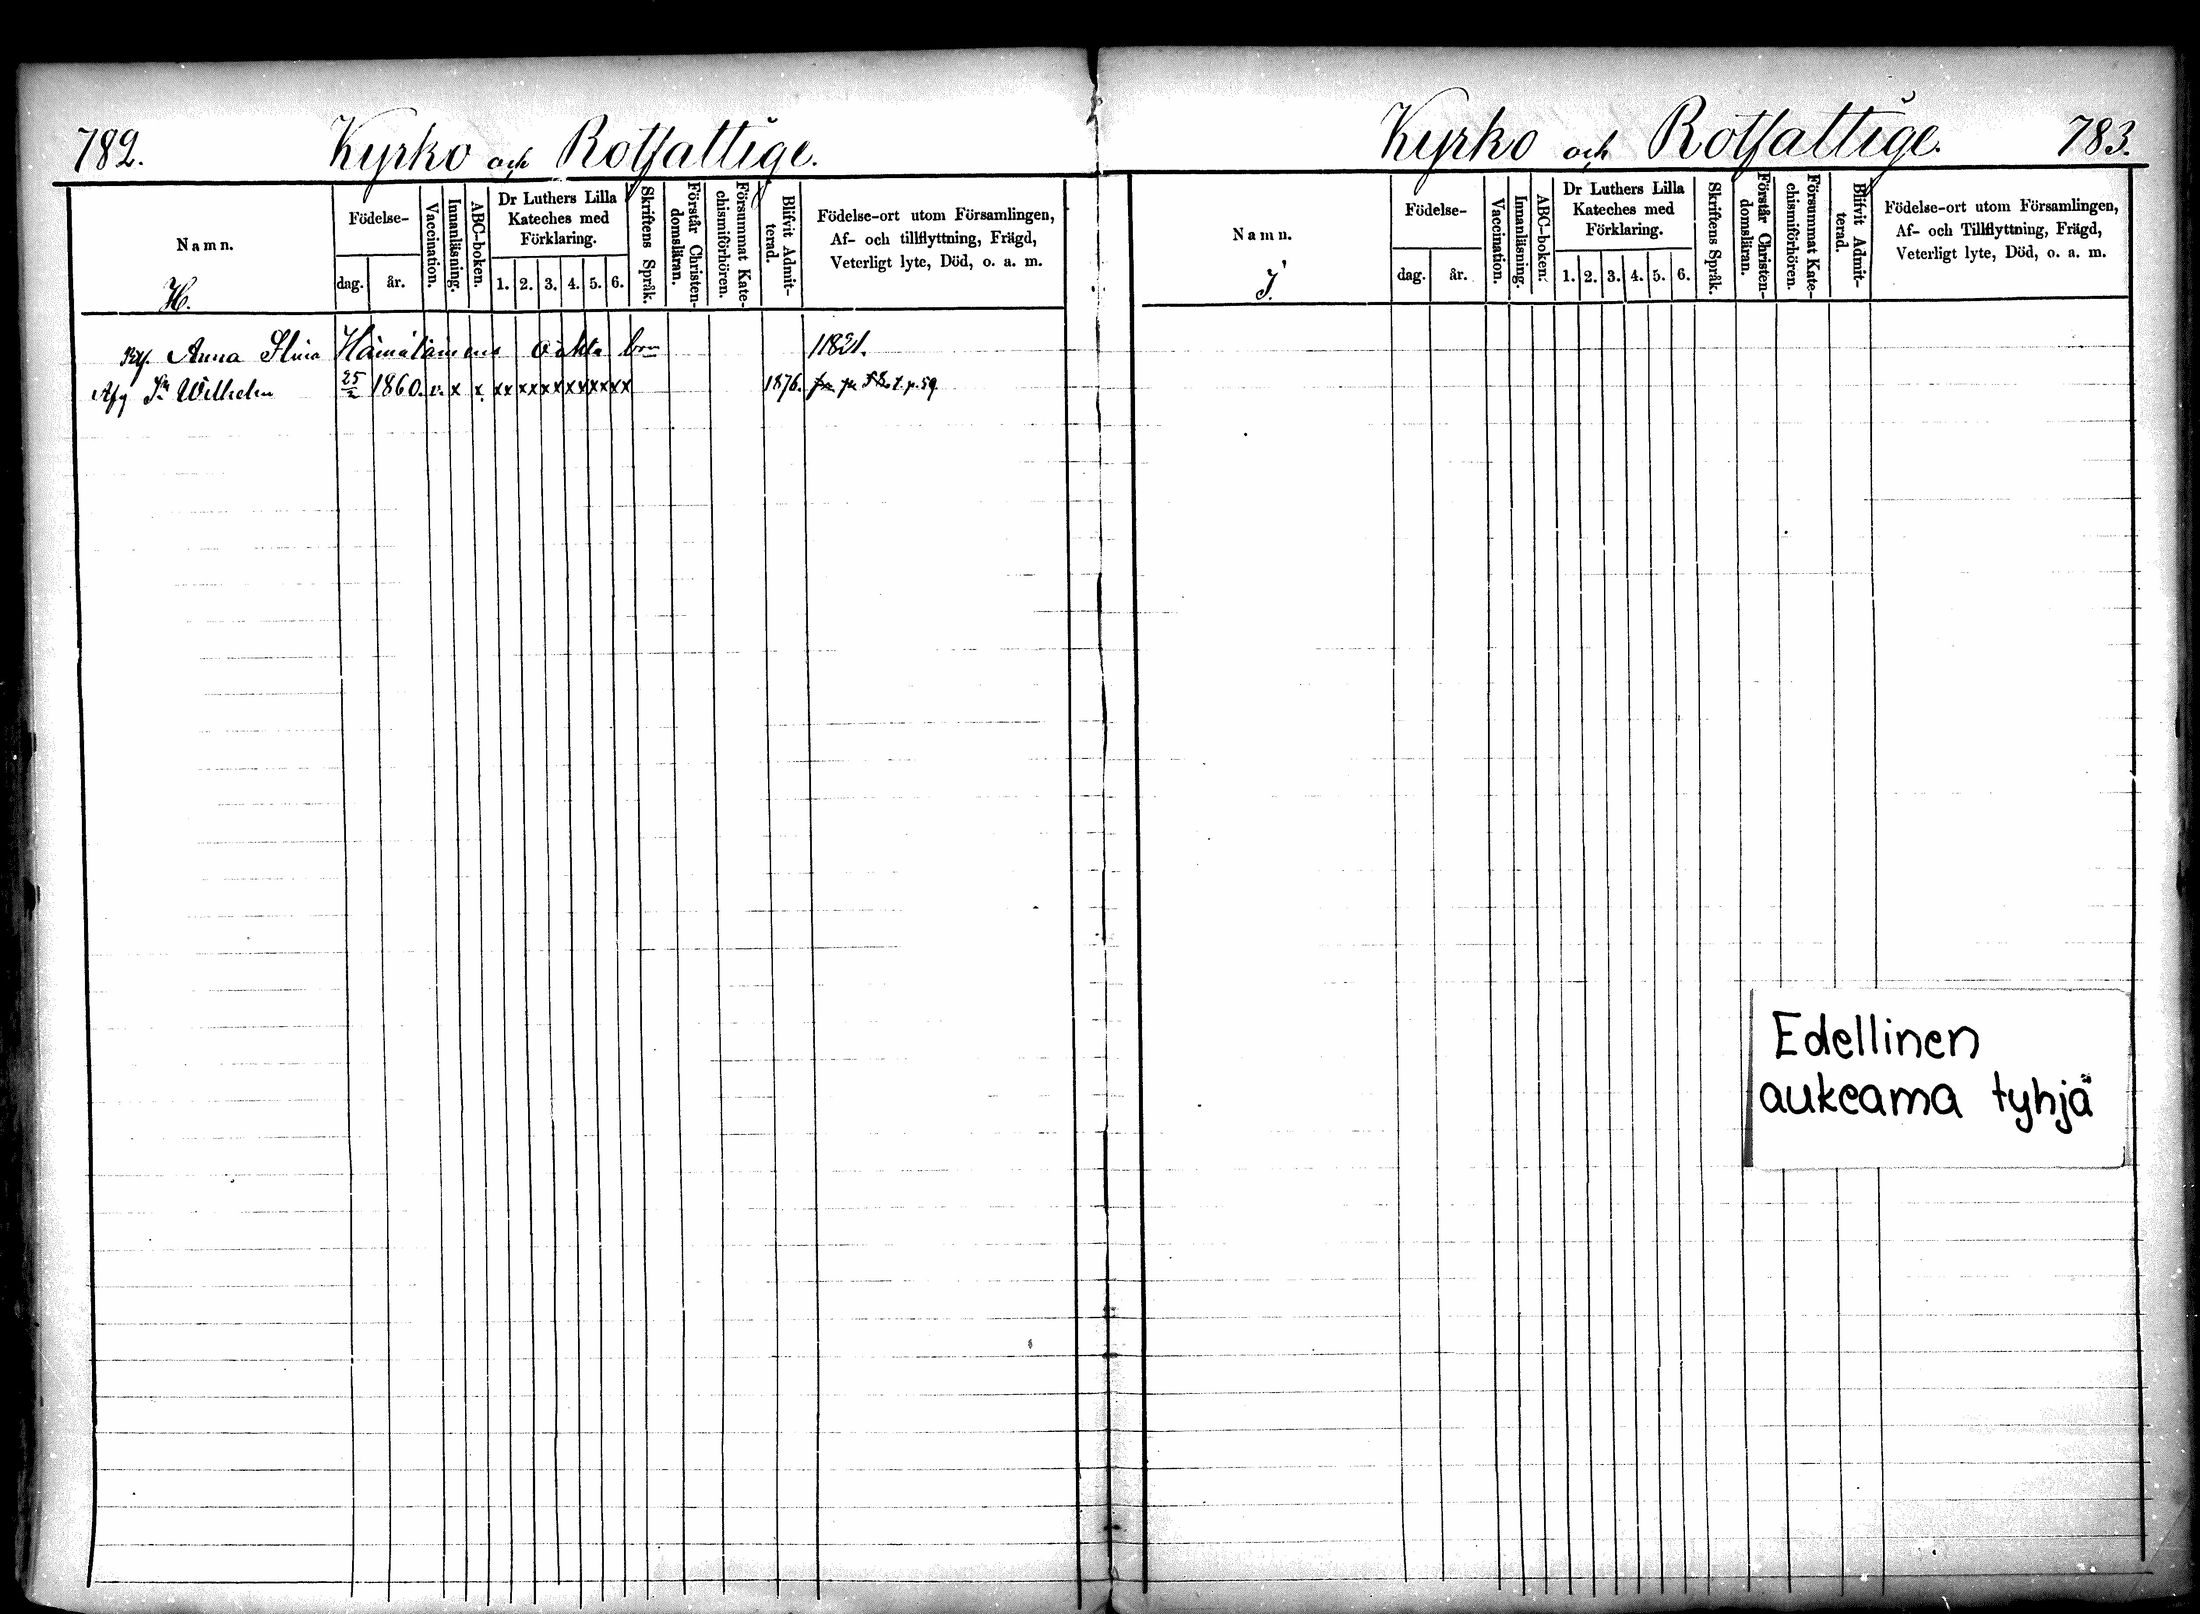 782. Kyrko och Rotfattige.
Namn.
H.
Födelse-
dag. år.
Vaccination.
Innanläsning.
ABC-boken.
Dr Luthers Lilla
Kateches med
Förklaring.
1. 2. 3. 4. 5. 6.
Skriftens Språk.
Förstår Christen-
domsläran.
Försummat Kate-
chismiförhören.
Blifvit Admit-
terad.
Födelse-ort utom Församlingen,
Af- och tillflyttning, Frägd,
Veterligt lyte, Död, o. a. m.
Anna Stina Hämäläinens oäkta 1821.
Wilhelm 25/2 1860. v. x x xx xx xx xx xx xx 1876. p. 59
Kyrko och Rotfattige. 783.
Namn.
I.
Födelse-
dag. år.
Vaccination.
Innanläsning.
ABC-boken.
Dr Luthers Lilla
Kateches med
Förklaring.
1. 2. 3. 4. 5. 6.
Skriftens Språk.
Förstår Christen-
domsläran.
Försummat Kate-
chismiförhören.
Blifvit Admit-
terad.
Födelse-ort utom Församlingen,
Af- och Tillflyttning, Frägd,
Veterligt lyte, Död, o. a. m.
Edellinen
aukeama tyhjä